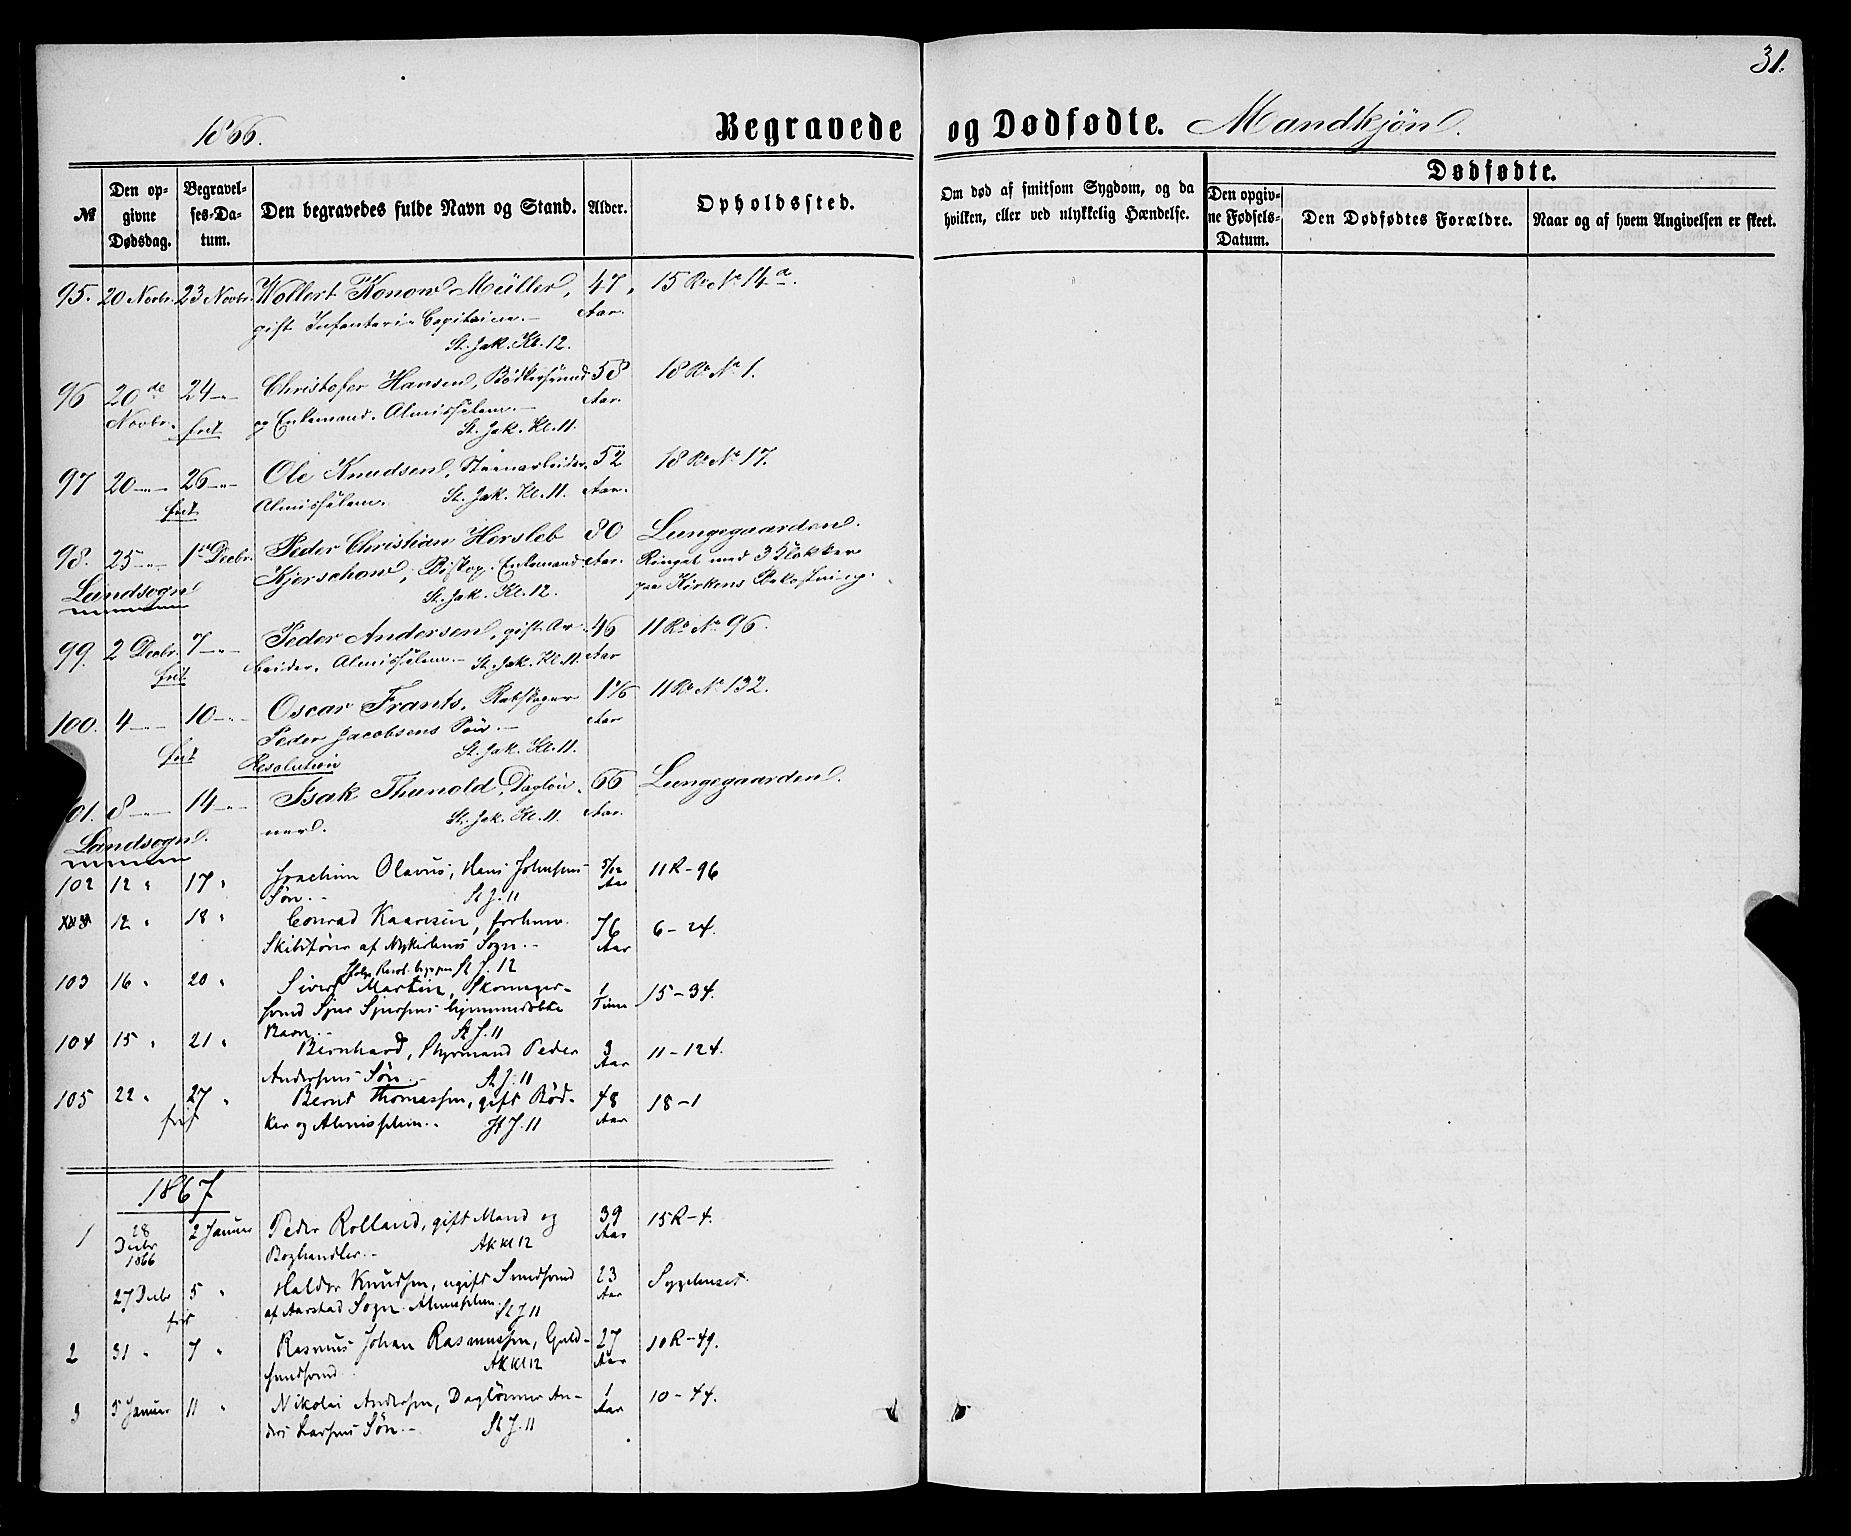 31.
1866.
Begravede og Dødfødte. Mandkjøn.
№
Den opgivne Dødsdag.
Begravelses-Datum.
Den begravedes fulde Navn og Stand.
Alder.
Opholdssted.
Om død af smitsom Sygdom, og da hvilken, eller ved ulykkelig Hændelse.
Dødfødte.
Den opgivne Fødsels-Datum.
Den Dødfødtes Forældre.
Naar og af hvem Angivelsen er skeet.
95. 20 Novbr. 23 Novbr. Wollert Konow Müller, 47, 15 Rd No 14a.
gift Infanteri-Capitaine.- Aar.
St. Jak. Kl. 12.
96 20de 24-"- Christofer Hansen, Bödkersvend 58 18 Rd No 1.
Novbr. frit og Enkemand. Almisselem.- Aar.
St. Jak. Kl. 11.
97 20-"- 26-"- Ole Knudsen, 52 18 Rd No 17.
frit Almisselem. St. Jak. Kl. 11. Aar.
98. 25-"- 1ste Decbr. Peder Christian Hersleb 80 Lungegaarden.
Kjerschow, Biskop. Enkemand Aar. Ringet med 3 Klokker
Landsogn St. Jak. Kl. 12. paa Kirkens Bekostning.
99. 2 Decbr. 7-"- Peder Andersen, gift Ar- 46 11 Rd No 96.
frit beider. Almisselem.- St. Jak. Kl. 11. Aar
100. 4-"- 10-"- Oscar Frants, 11 Rd No 132.
frit Peder Jacobsens Søn.- Aar
St. Jak. Kl. 11.
Resolution
101. 8-"- 14-"- Isak Thunold, Dagløn- 66 Lungegaarden.
ner. St. Jak. Kl. 11. Aar.
Landsogn.
102 12 " 17 " Joachim Olavus, Hans Johnsens 5/12 11 R-96
Søn.- St J. 11 Aar
12 " 18 " Conrad Kaarsen, forhenv. 76 6-24.
Skibsfører af Nykirkens Sogn.- Aar
St J. 12
103 16 " 20 " Sivert Martin, Skomager- 1 15-34.
svend Sjur Sjursens hjemmedøbte Time
Barn.- St J. 11
104 15 " 21 " Bernhard, Styrmand Peder 3 11-124.
Andersens Søn.- St J. 11 Aar
105 22 " 27 " Bernt Thomassen, gift Bød- 48 18-1
frit ker og Almisselem.- St J. 11 Aar
1867
1 28 Decbr 1866 2 Januar Peder Rolland, gift Mand og 39 15 R-4.
Boghandler.- AK Kl 12 Aar
27 Decbr 5 " Haldor Knudsen, ugift Smedsvend 23 Sygehuset.
frit af Aarstad Sogn. Almisselem. St J 11 Aar
2 31 " 7 " Rasmus Johan Rasmussen, Guld- 27 10 R-49.
smedsvend. AK Kl 12 Aar
3 5 Januar 11 " Nikolai Andersen, Daglønner An- 1 10-44.
ders Larsens Søn.- St J. 11 Aar